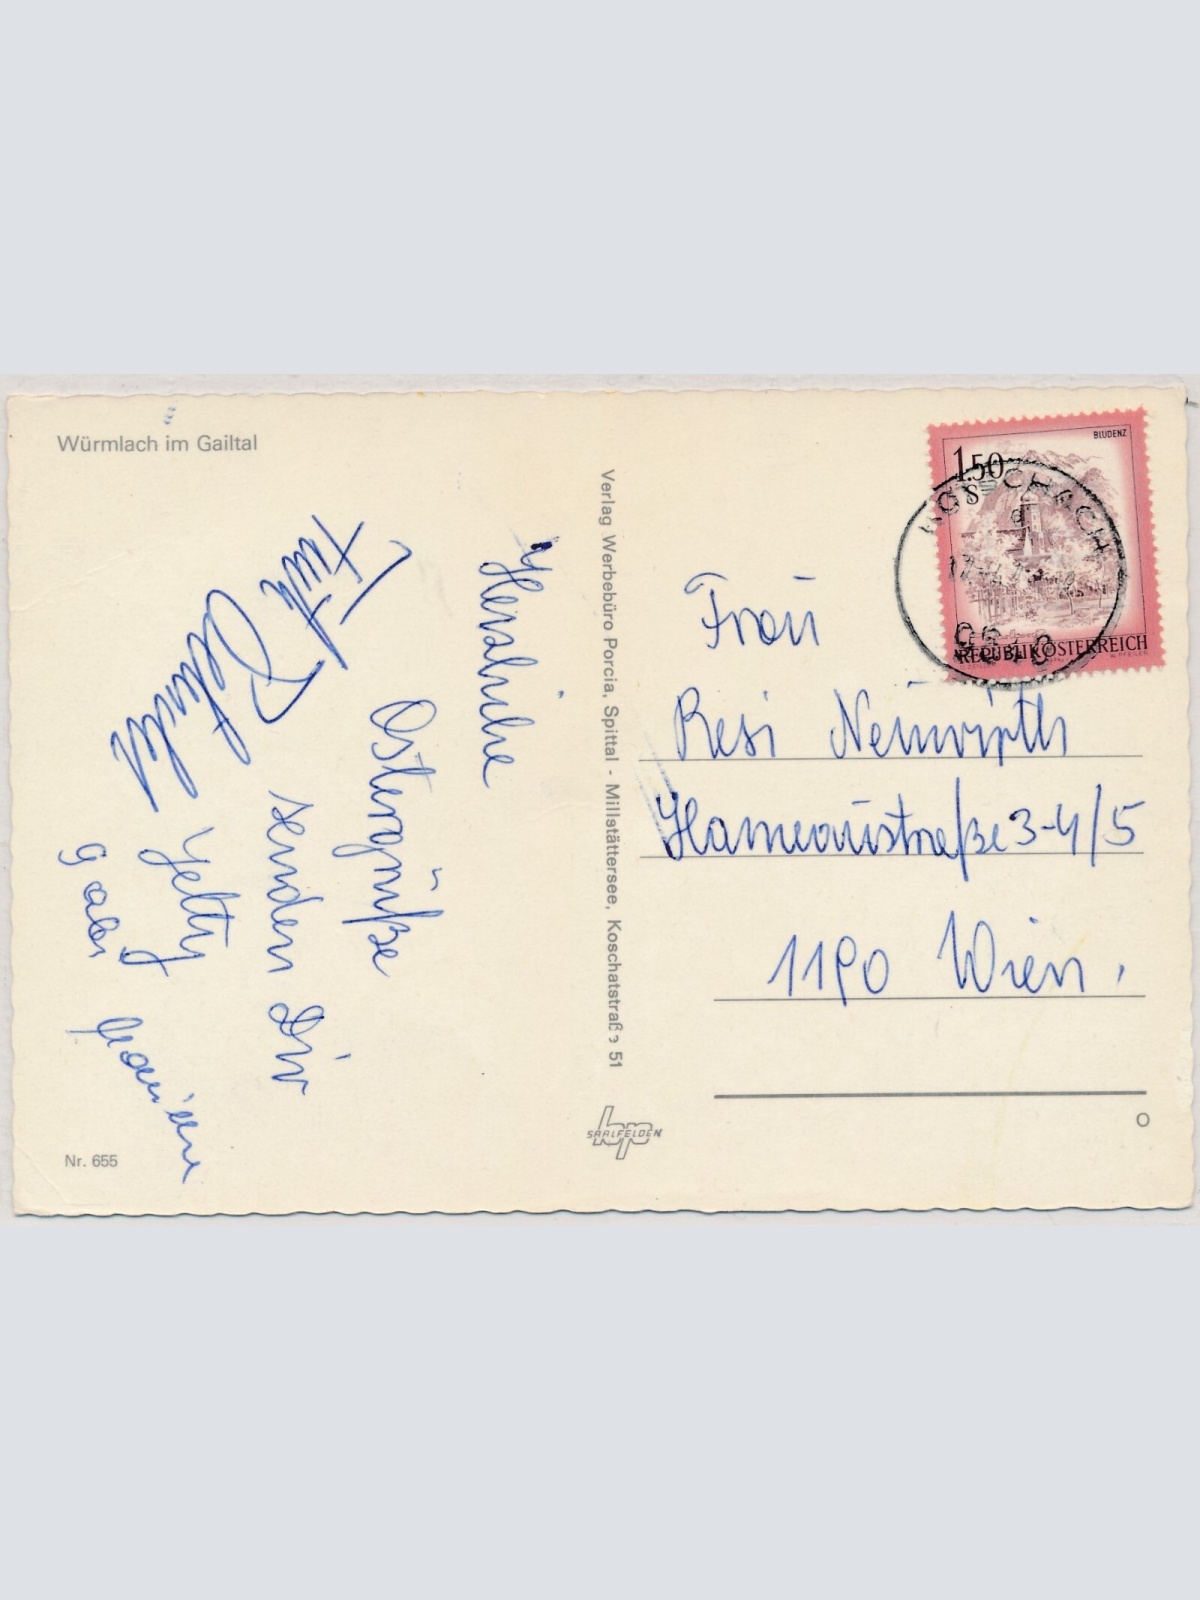 Würmlach im Gailtal
BLUDENZ
1.50
S
KÖTSCHACH
REPUBLIK ÖSTERREICH
Verlag Werbebüro Porcia, Spittal - Millstättersee, Koschatstraße 51
Herzliche
Ostergrüße
senden Dir
Jetty
Gabi
Frau
Resi Neuwirth
Hameaustraße 3-4/5
1190 Wien.
bp
SAALFELDEN
Nr. 655
O